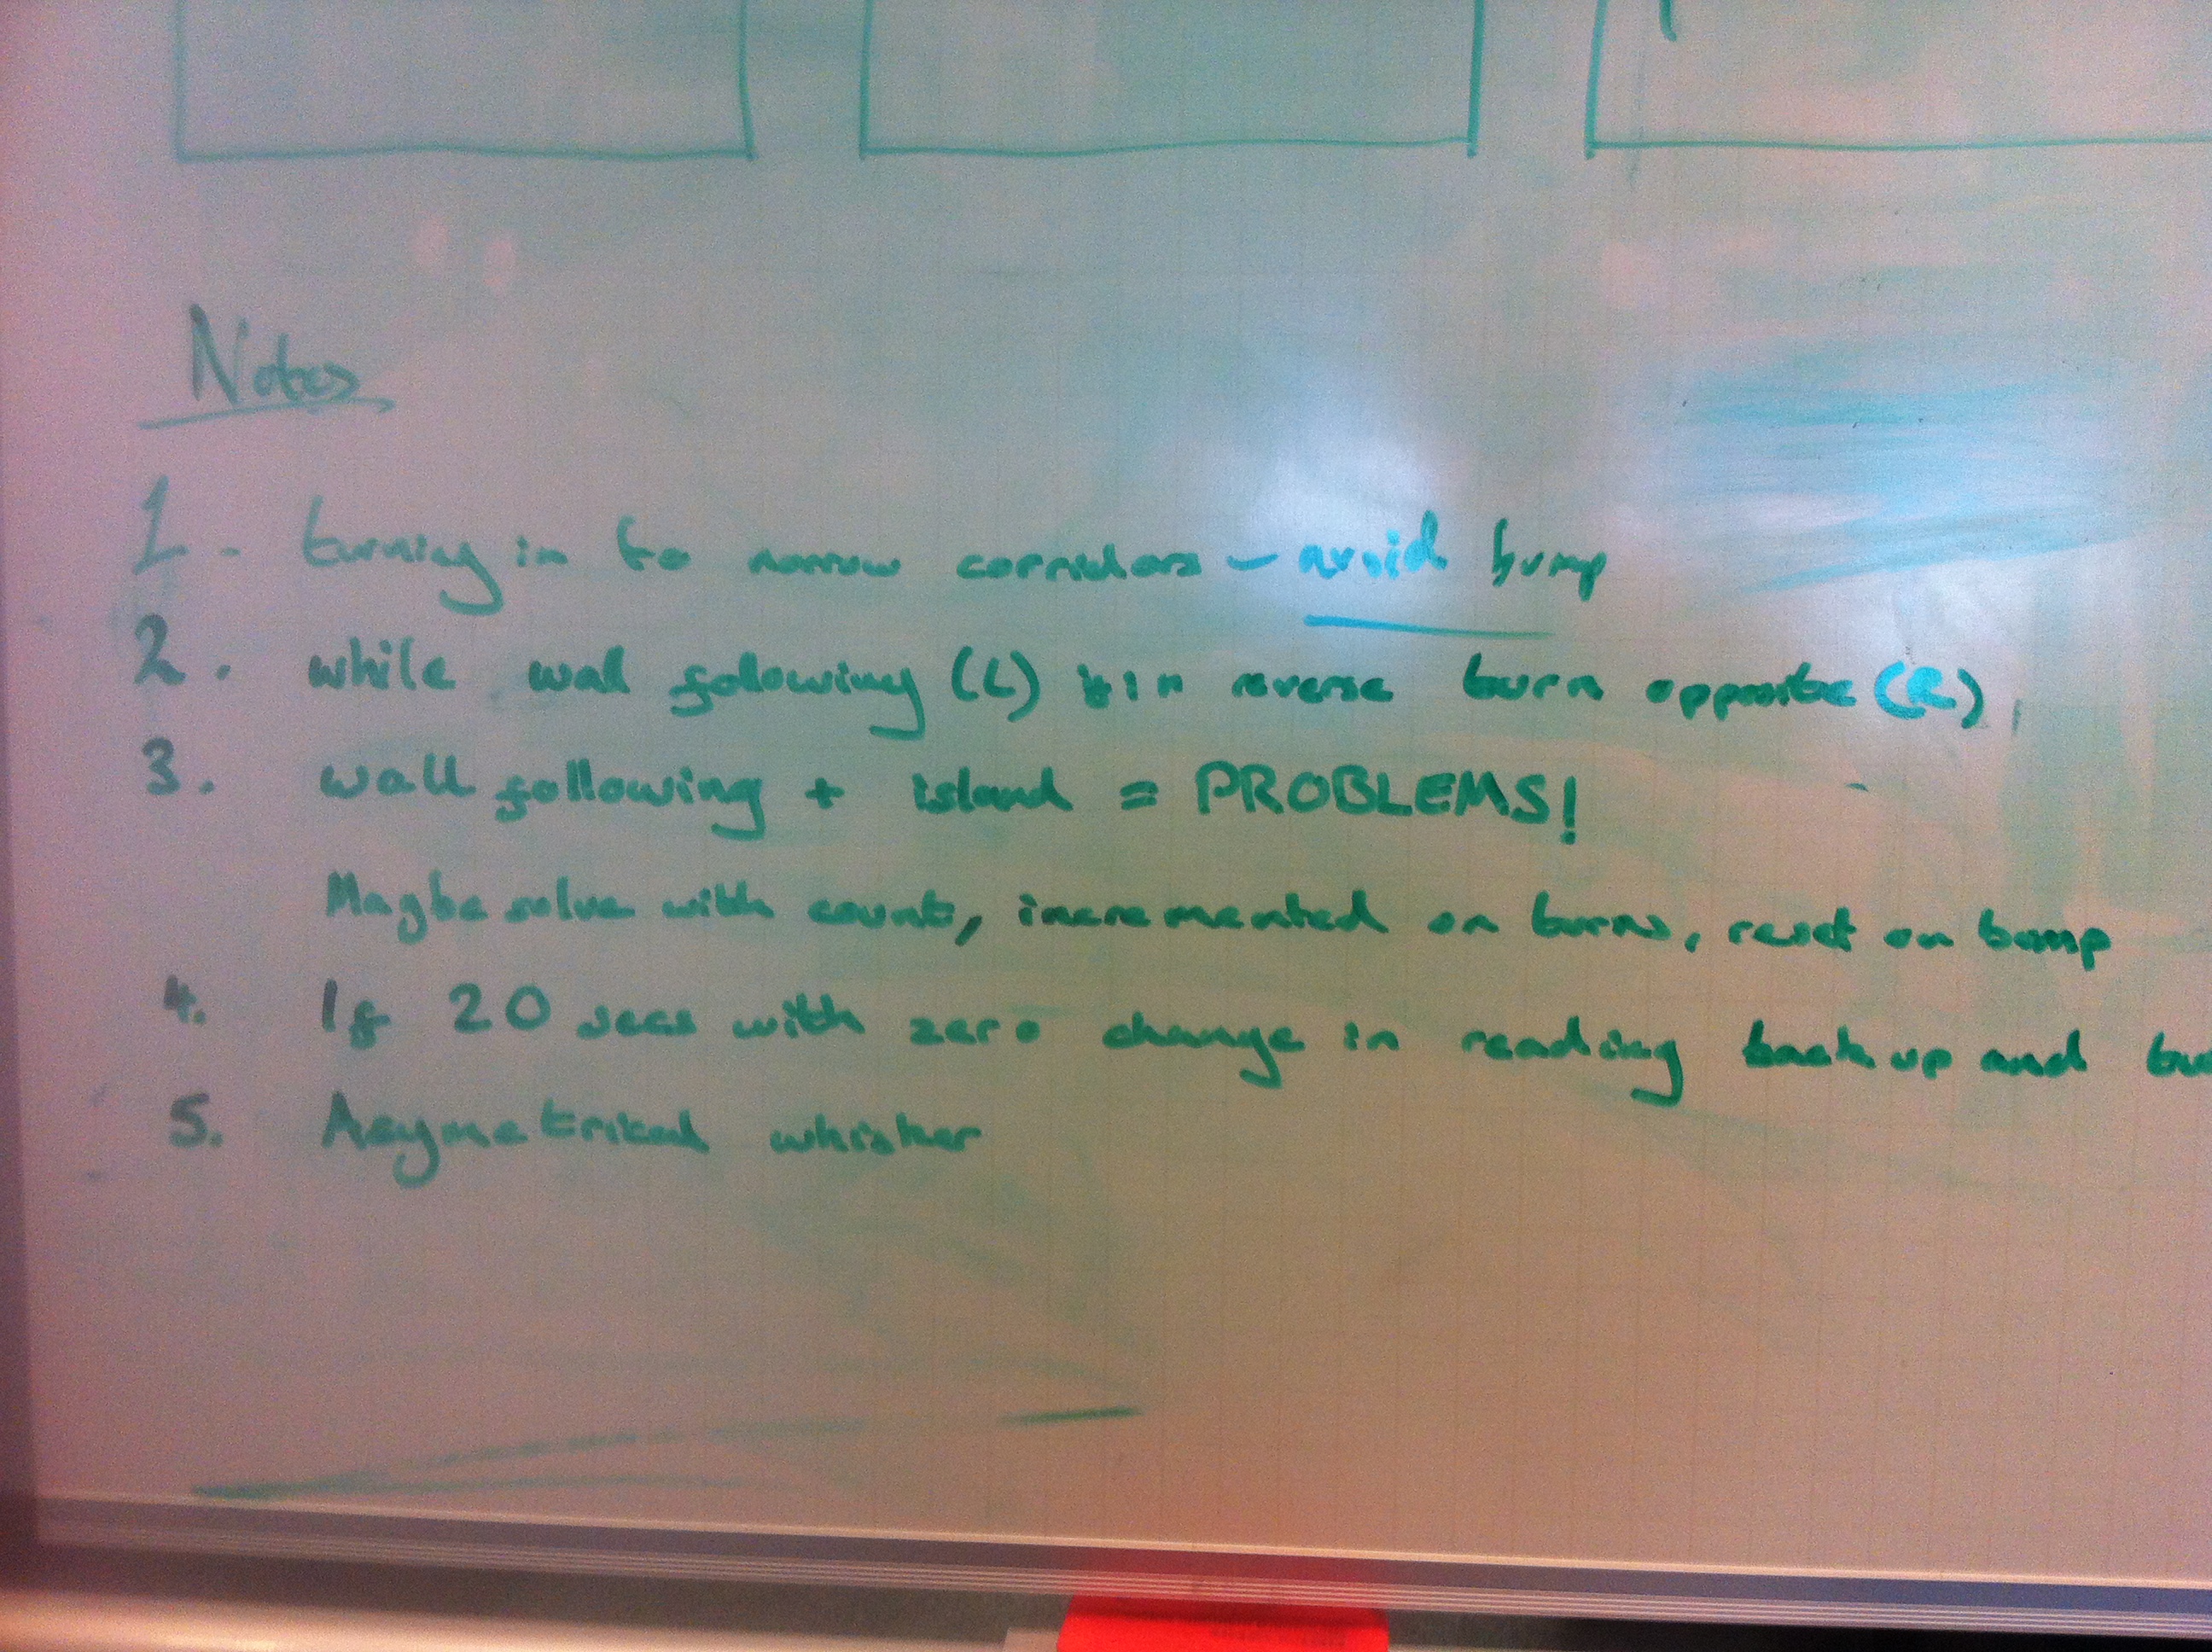 Notes
1. turning in to narrow corridors - avoid bump
2. while wall following (L) in reverse turn opposite (R)
3. wall following + island = PROBLEMS!
Maybe solve with count, incremented on turns, reset on bump
4. If 20 secs with zero change in reading back up and
5. Asymetrical whisker